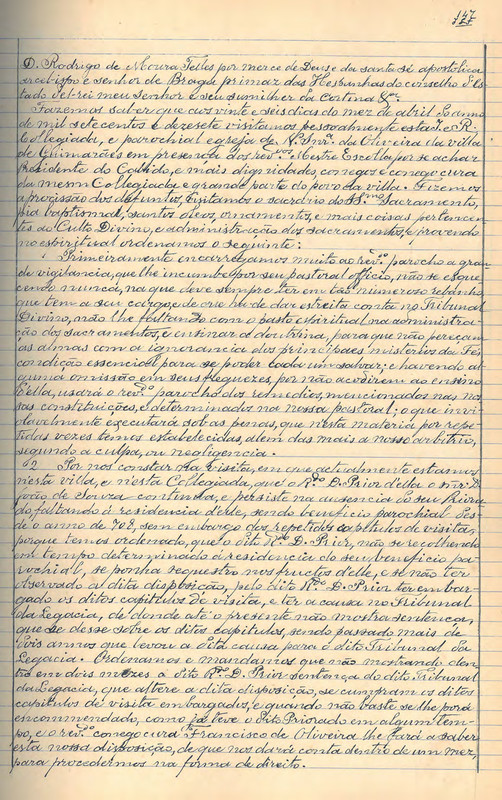 127
D. Rodrigo de Moura Telles por merce de Deus e da santa sé apostolica
arcebispo e senhor de Braga primaz das Hespanhas do conselho d'Es-
tado d'el-rei meu Senhor e seu sumilher da Cortina &ª.
Fazemos saber que aos vinte e seis dias do mez de abril do anno
de mil sete centos e dezesete visitamos pessoalmente esta R.
Collegiada, e parochial egreja de N. Snrª. da Oliveira da villa
de Guimarães em presença do revº. Mestre Escolla por se achar
Presidente do Cabido, e mais dignidades, conegos e conego cura
da mesma Collegiada e grande parte do povo da villa. Fizemos
a procissão dos defuntos, visitamos o sacrario do SSmº. Sacramento,
pia baptismal, santos oleos, ornamentos, e mais coisas pertencen-
tes ao Culto Divino, e administração dos sacramentos, e provendo
no espiritual ordenamos o seguinte:
1 Primeiramente encarregamos muito ao revº. parocho a gran-
de vigilancia, que lhe incumbe por seu pastoral officio, não se esque-
cendo nunca, na que deve sempre ter em tão numeroso rebanho
que tem a seu cargo, e de que ha de dar estreita conta no Tribunal
Divino, não lhe faltando com o pasto espiritual na administra-
ção dos sacramentos, e ensinar a doutrina, para que não pereçam
as almas com a ignorancia dos principaes misterios da Fé,
condição essencial para se poder cada um salvar: e havendo al-
guma omissão em seus freguezes, por não acodirem ao ensino
d'ella, usará o revº. parocho dos remedios, mencionados nas nos-
sas constituições, e determinados na nossa pastoral; o que invi-
olavelmente executará sob as penas, que nesta materia por repe-
tidas vezes temos estabelecidas, alem das mais a nosso arbitrio,
segundo a culpa, ou negligencia.
2 Por nos constar da visita, em que actualmente estamos
nesta villa, e nesta Collegiada, que o Rº. D. Prior della o snr. D.
João de Souza contenda, e persiste na ausencia do seu Priora-
do faltando á residencia d'elle, sendo beneficio parochial des-
de o anno de 708, sem embargo dos repetidos capitulos de visita,
porque temos ordenado, que o dito Rº. D. Prior, não se recolhendo
em tempo determinado á residencia do seu beneficio pa-
rochial, se ponha sequestro nos fructos d'elle, e se não ter
observado a dita disposição, pelo dito Rº. D. Prior ter embar-
gado os ditos capitulos de visita, e ter a causa no Tribunal
da Legacia, de donde até o presente não mostra sentença,
que se desse sobre os ditos capitulos, sendo passado mais de
dois annos que levou a dita causa para o dito Tribunal da
Legacia. Ordenamos e mandamos que não mostrando den-
tro em dois mezes o dito Rº. D. Prior sentença do dito Tribunal
da Legacia, que altere a dita disposição, se cumpram os ditos
capitulos de visita embargados, e quando não baste se lhe porá
encommendado, como já teve o dito Priorado em algum tem-
po, e o revº. conego cura Francisco de Oliveira lhe fará a saber
esta nossa disposição, de que nos dará conta dentro de um mez,
para procedermos na forma de direito.